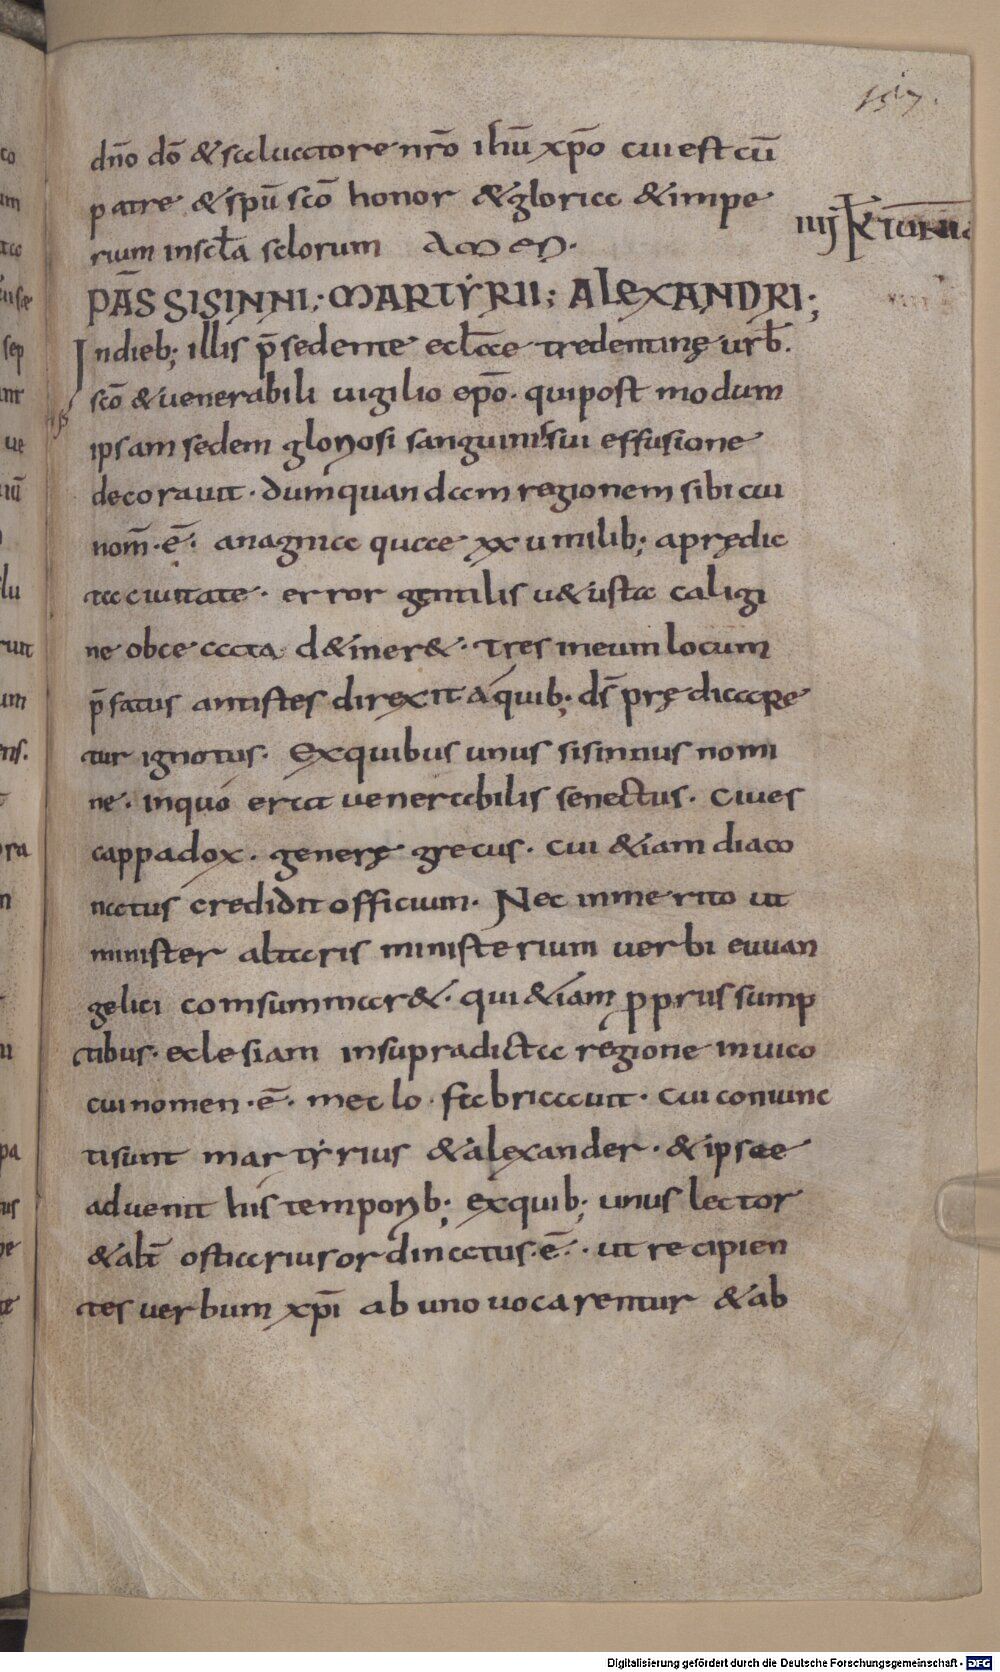 157.
dn̄o dō & saluatore nr̄o ihū xp̄o cui est cū
patre & spū scō honor & gloria & impe
rium in scl̄a sclorum AMEN.
IIIJ K̄ IUN
PĀS SISINNI; MARTYRII; ALEXANDRI;
In dieb; illis p̄sedente eclae tredentinę urb̄.
scō & uenerabili uigilio ep̄o. qui post modum
ipsam sedem gloriosi sanguinis sui effusione
decorauit. dum quandam regionem sibi cui
nom̄.ē. anagnia quae xx u milib; a prędic
ta ciuitate. error gentilis u&usta caligi
ne obcecata d&iner&. tres in eum locum
p̄fatus antistes direxit a quib; ds̄ prę dicare
tur ignotus. Ex quibus unus sisinnius nomi
ne. in quo erat uenerabilis senectus. ciues
cappadox. generę grecus. cui &iam diaco
natus credidit officium. Nec inmerito ut
minister altaris ministerium uerbi euuan
gelici comsummar&. qui &iam propriis sump
tibus. eclesiam in supradicta regione in uico
cui nomen.ē. meclo fabricauit. Cui coniunc
ti sunt martyrius & alexander. & ipsae
aduenit his temporib; ex quib; unus lector
& alt̄ ostiarius ordinatus.ē. ut recipien
tes uerbum xp̄i ab uno uocarentur & ab
Digitalisierung gefördert durch die Deutsche Forschungsgemeinschaft - DFG